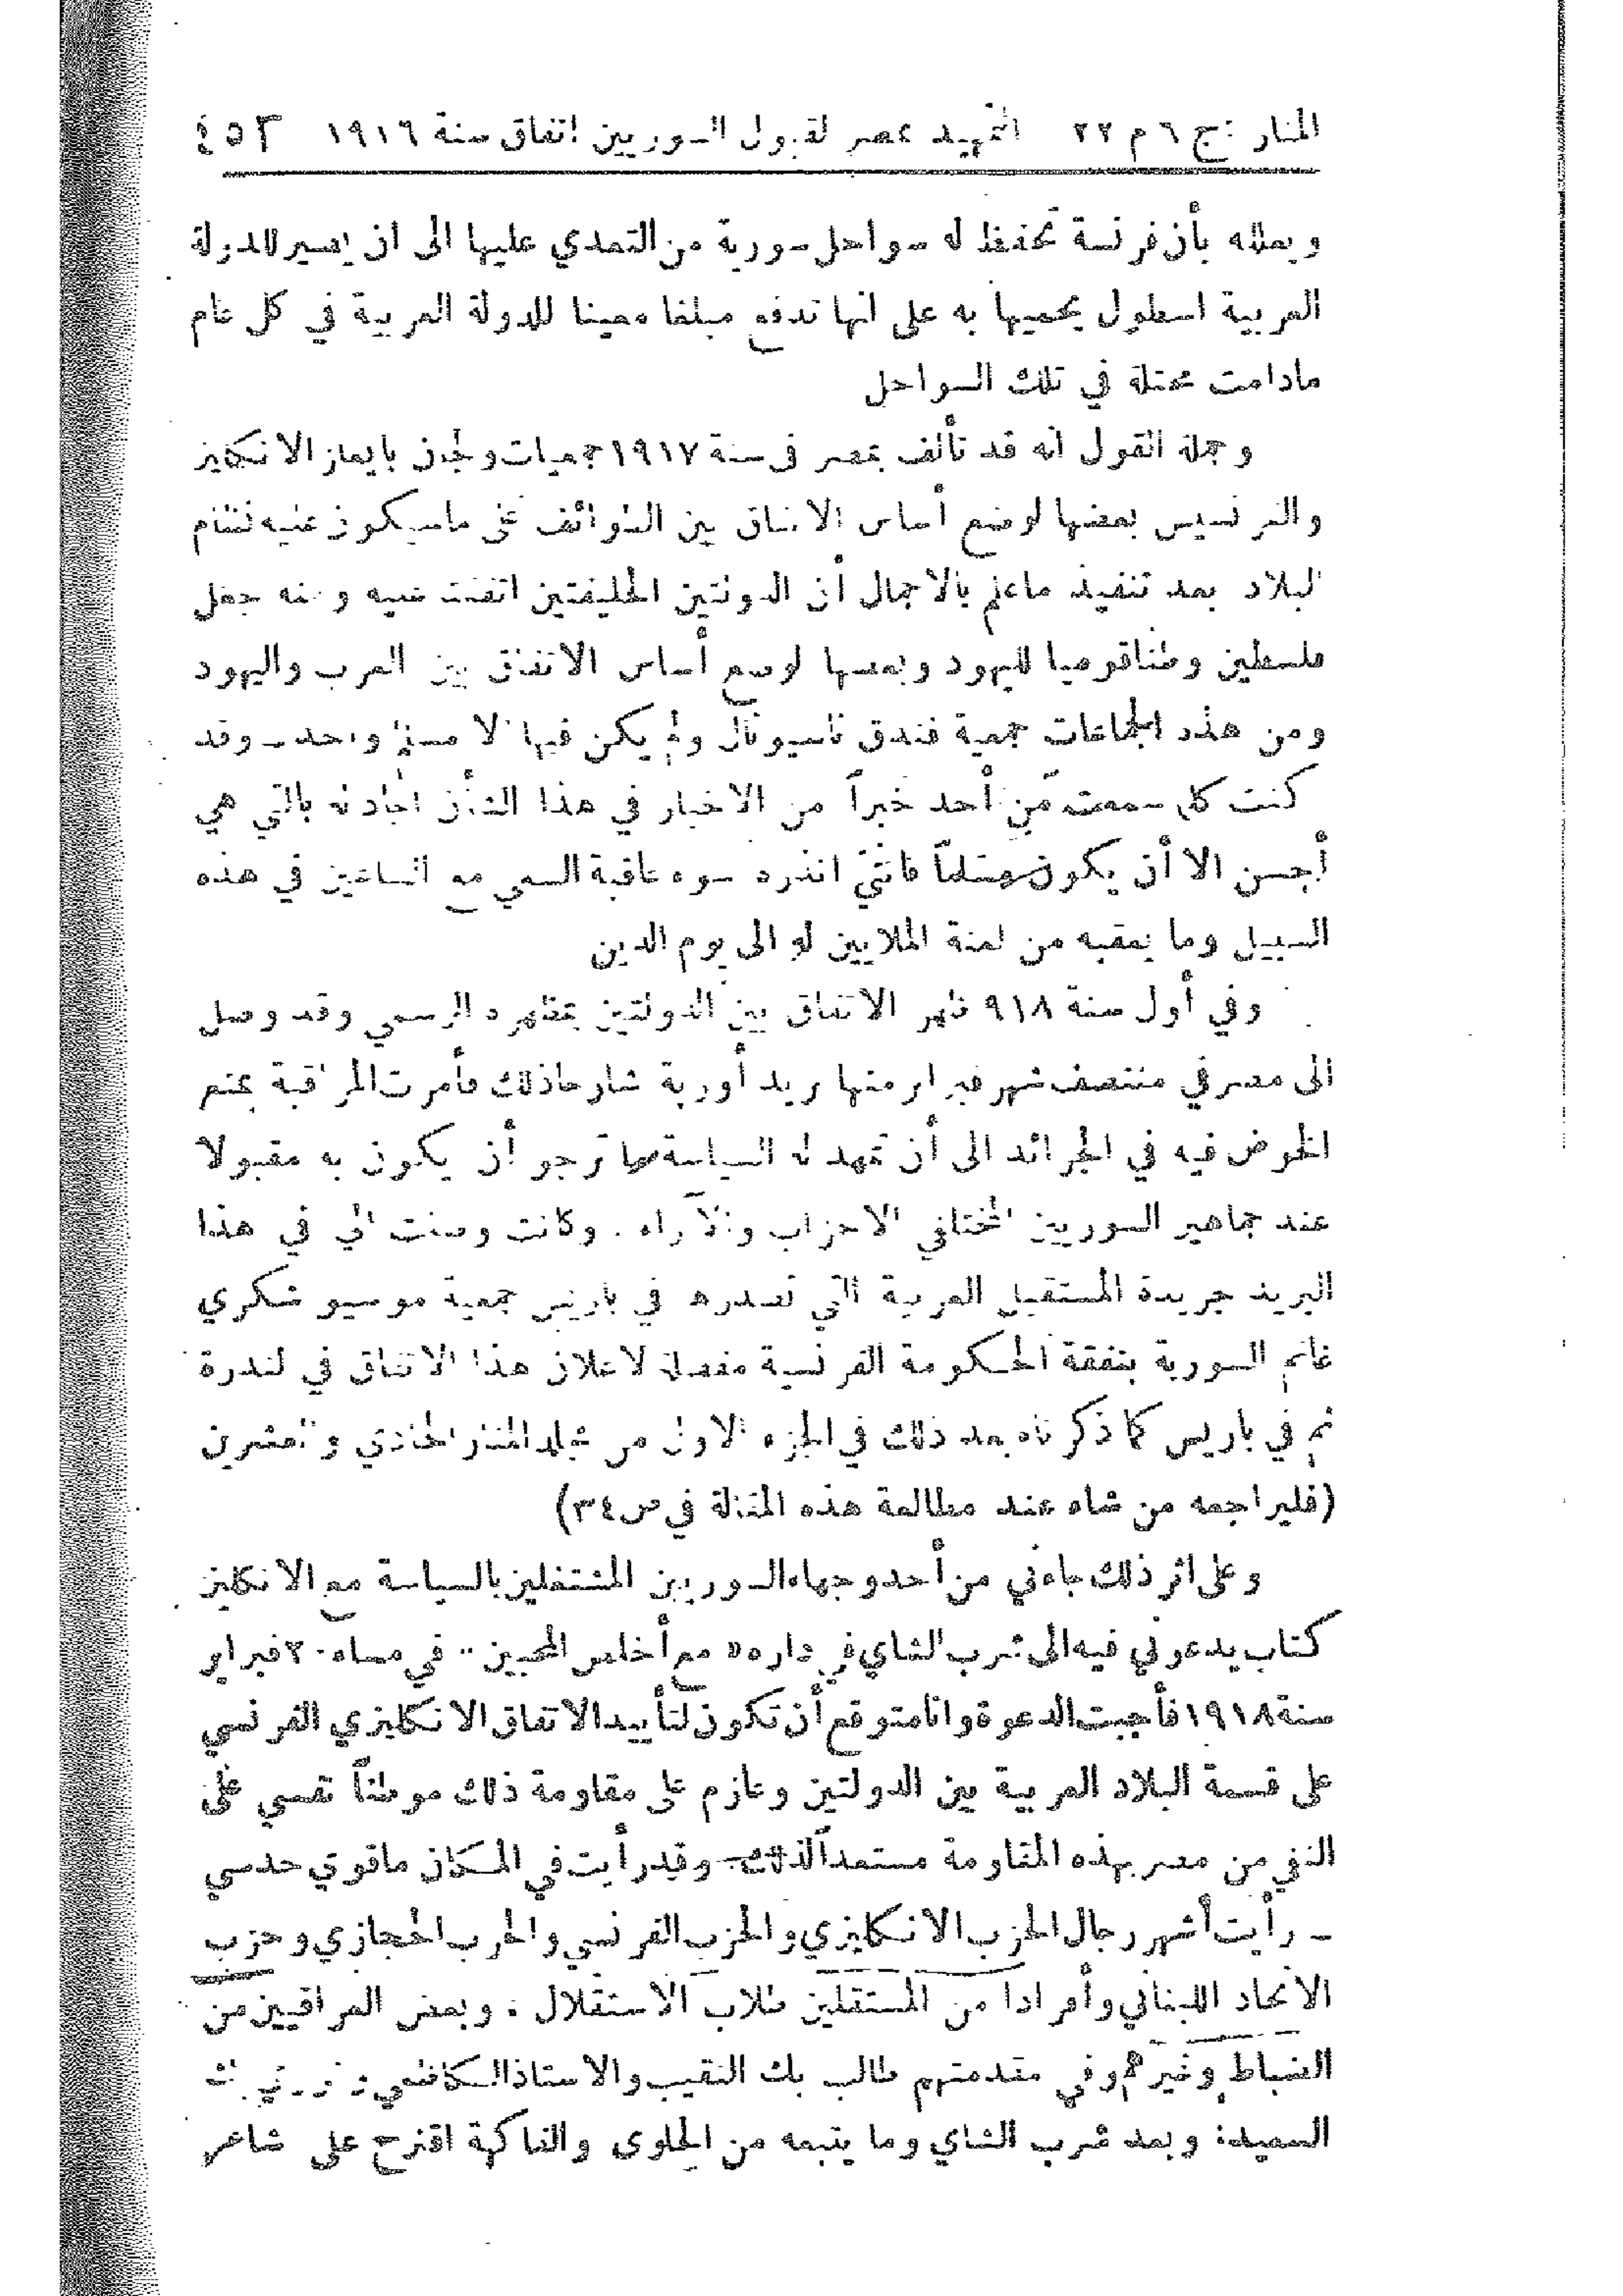 المنار : ج ٦ م ٢٢ التمهيد بمصر لقبول السوريين اتفاق سنة ١٩١٦ ٤٥٣
ويعلله بأن فرنسة تحفظ له سواحل سورية من التعدي عليها الى ان يصير للدولة
العربية اسطول يحميها به على انها تدفع مبلغا معينا للدولة العربية في كل عام
مادامت محتلة في تلك السواحل
وجملة القول انه قد تألف بمصر في سنة ١٩١٧ جمعيات ولجان بايعاز الانكليز
والفرنسيس بعضها لوضع أساس الاتفاق بين الطوائف على ماسيكون عليه نظام
البلاد بعد تنفيذ ماعلم بالاجمال أن الدولتين الحليفتين اتفقتا عليه ومنه جعل
فلسطين وطنا قوميا لليهود وبعضها لوضع أساس الاتفاق بين العرب واليهود
ومن هذه الجماعات جمعية فندق ناسيونال ولم يكن فيها الا مسلم واحد ــ وقد
كنت كل سمعت من أحد خبراً من الاخبار في هذا الشأن اجادله بالتي هي
أحسن الا أن يكون مسلماً فانني انذره سوء عاقبة السعي مع الساعين في هذه
السبيل وما يعقبه من لعنة الملايين له الى يوم الدين
وفي أول سنة ٩١٨ ظهر الاتفاق بين الدولتين بمظهره الرسمي وقد وصل
الى مصر في منتصف شهر فبراير منها بريد أوربة شارحا ذلك فأمرت المراقبة بمنع
الخوض فيه في الجرائد الى أن تمهد له السياسة بما ترجو أن يكون به مقبولا
عند جماهير السوريين المختلفي الاحزاب والآراء . وكانت وصلت الي في هذا
البريد جريدة المستقبل العربية التي تصدرها في باريس جمعية موسيو شكري
غانم السورية بنفقة الحكومة الفرنسية مفصلة لاعلان هذا الاتفاق في لندرة
ثم في باريس كما ذكرناه بعد ذلك في الجزء الاول من مجلد المنار الحادي والعشرين
(فليراجعه من شاء عند مطالعة هذه المقالة في ص ٣٤)
وعلى اثر ذلك جاءني من أحد وجهاء السوريين المشتغلين بالسياسة مع الانكليز
كتاب يدعوني فيه الى شرب الشاي في داره « مع أخلص المحبين » في مساء ٢٠ فبراير
سنة ١٩١٨ فأجبت الدعوة وانا متوقع أن تكون لتأييد الاتفاق الانكليزي الفرنسي
على قسمة البلاد العربية بين الدولتين وعازم على مقاومة ذلك موطناً نفسي على
النفي من مصر بهذه المقاومة مستعداً لذلك وقد رأيت في المكان ماقوي حدسي
ــ رأيت أشهر رجال الحزب الانكليزي والحزب الفرنسي والحزب الحجازي وحزب
الاتحاد اللبناني وأفرادا من المستقلين طلاب الاستقلال . وبعض العراقيين من
الضباط وغيرهم وفي مقدمتهم طالب بك النقيب والاستاذ الكاظمي
السعيد: وبعد شرب الشاي وما يتبعه من الحلوى والفاكهة اقترح على شاعر